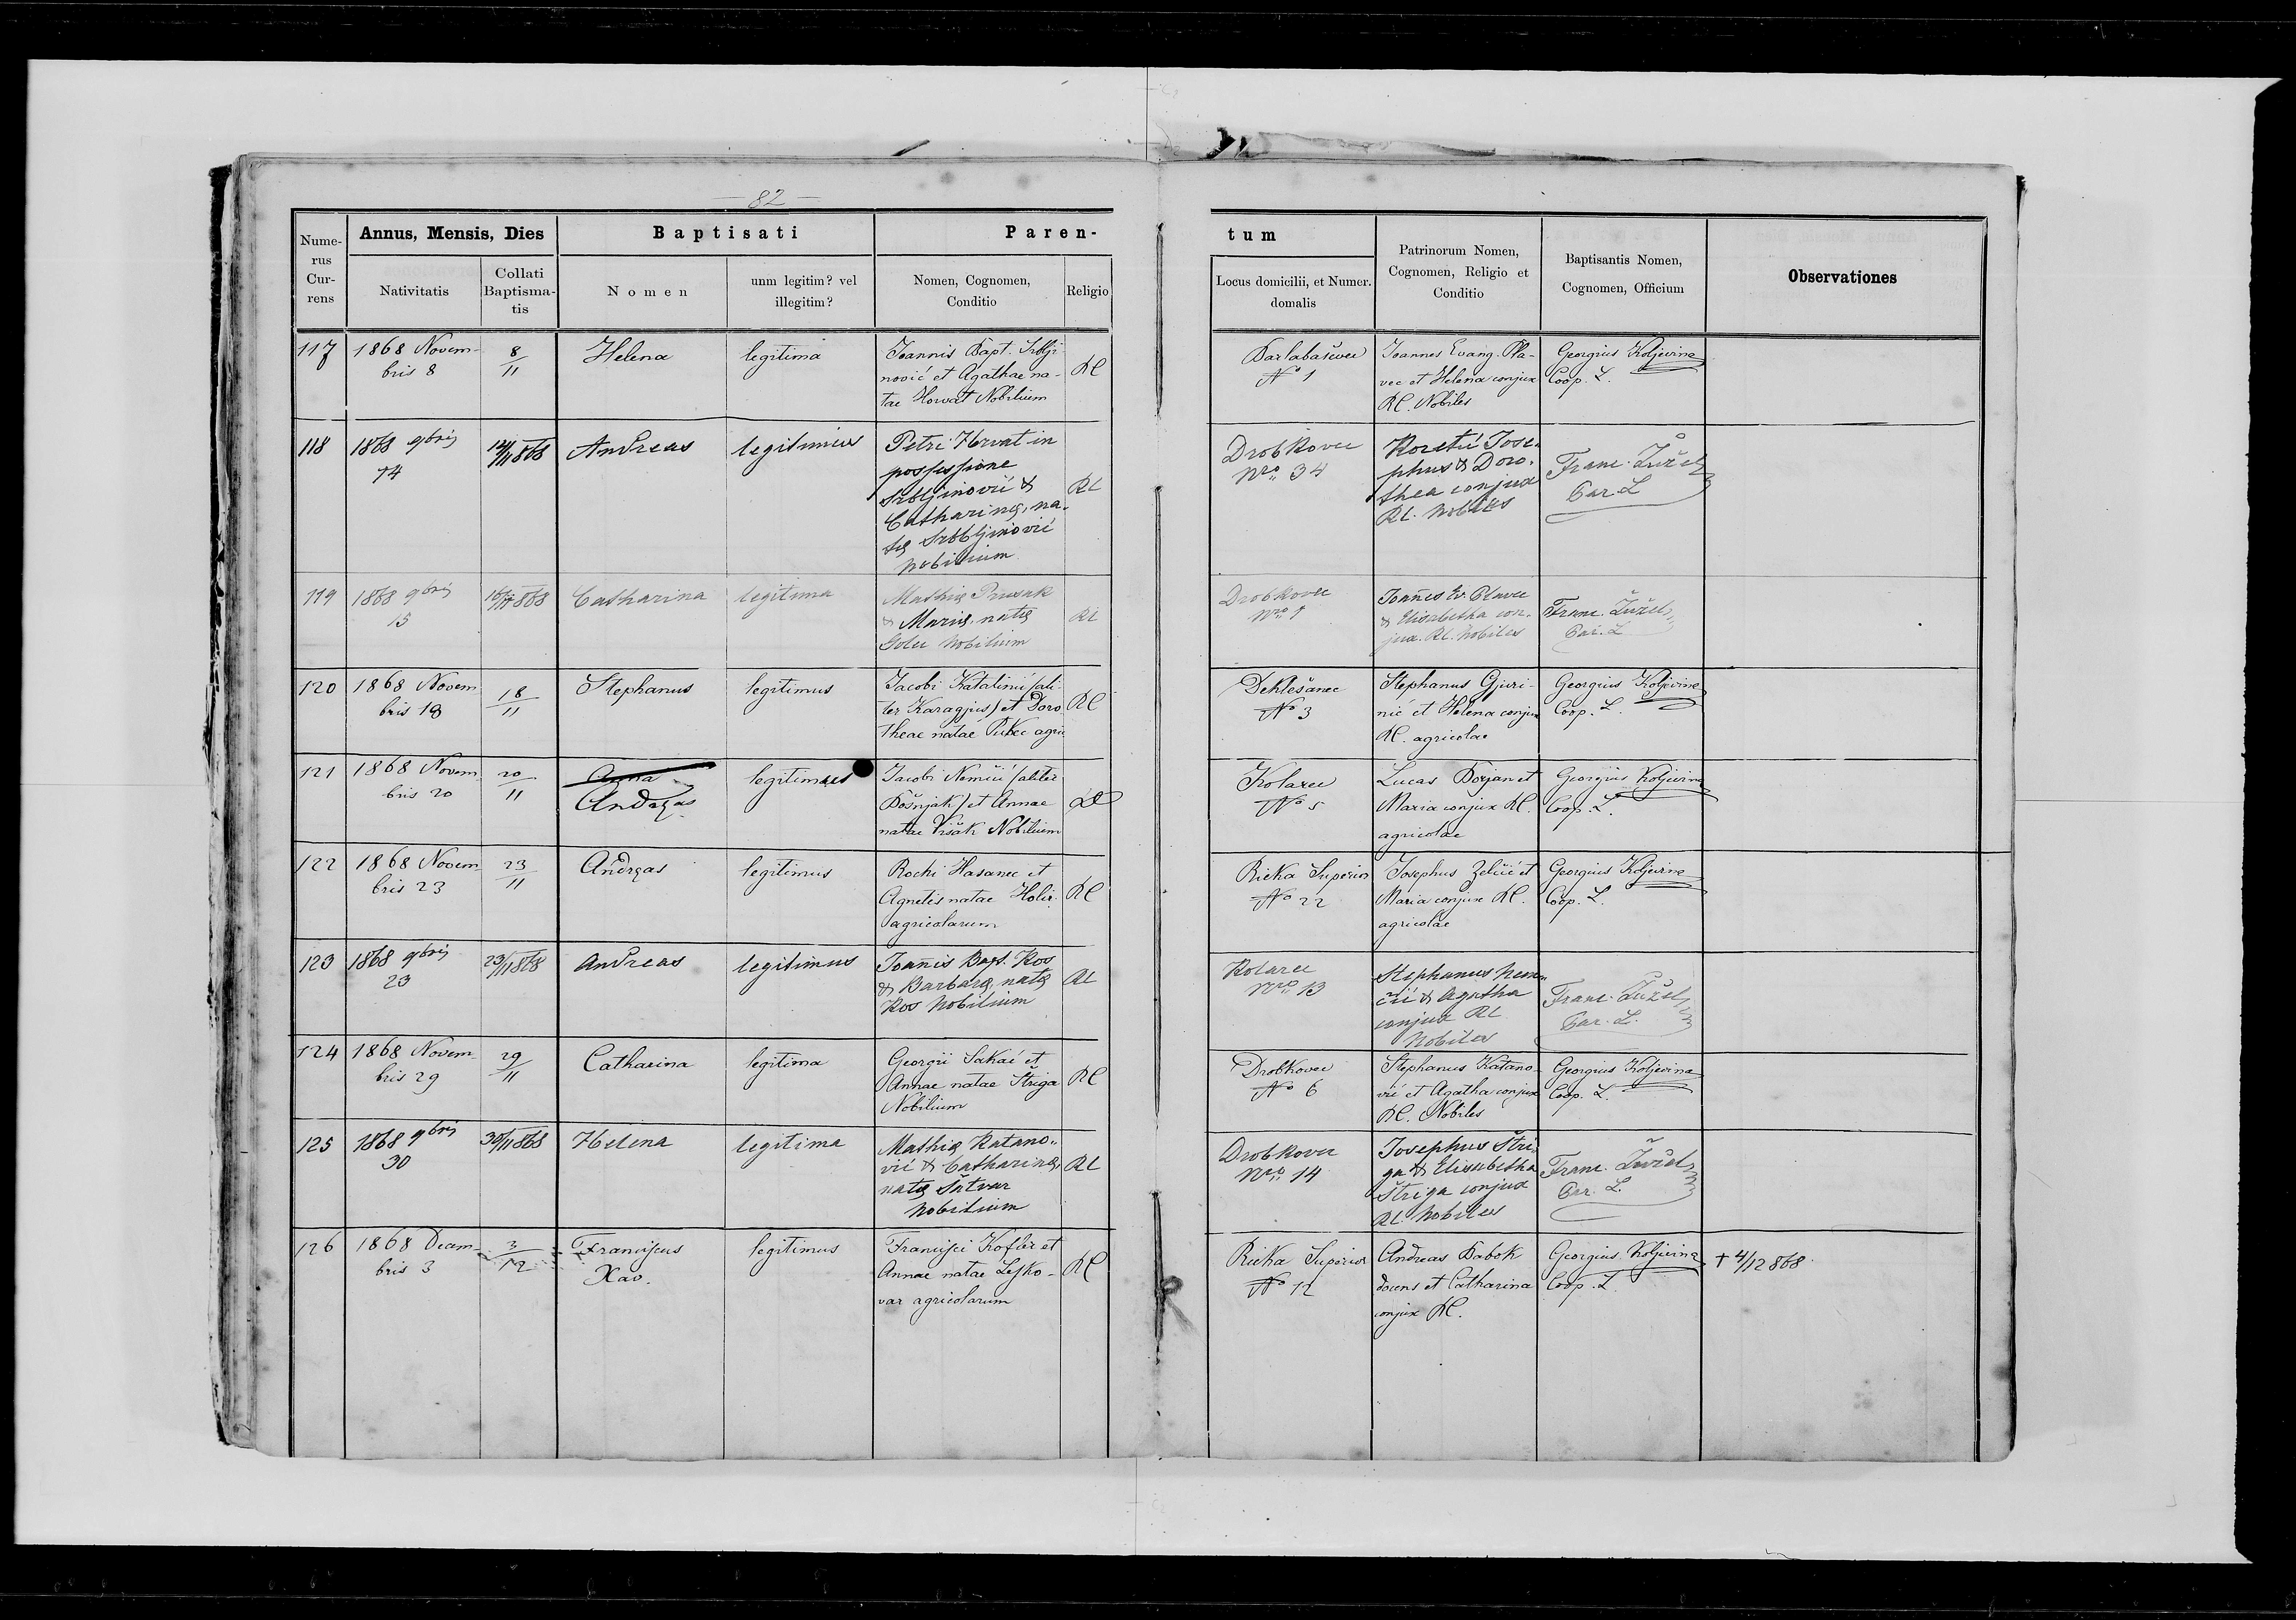 — 82 —
Nume-
rus
Cur-
rens
Annus, Mensis, Dies
Nativitatis
Collati
Baptisma-
tis
Baptisati
Nomen
unm legitim? vel
illegitim?
Paren-
Nomen, Cognomen,
Conditio
Religio
tum
Locus domicilii, et Numer.
domalis
Patrinorum Nomen,
Cognomen, Religio et
Conditio
Baptisantis Nomen,
Cognomen, Officium
Observationes
117
1868 Novem-
bris 8
8/11
Helena
legitima
Joannis Bapt. Srblji
nović et Agathae na-
tae Horvat Nobilium
RC
Barlabaševec
No 1
Joannes Evang. Pla-
vec et Helena conjux
RC. Nobiles
Georgius Koljevina
Coop. L.
118
1868 9bris
14
14/11 868
Andreas
legitimus
Petri Hrvat in
possessione
Srbljinović &
Catharinę, na-
tę Srbbljinović
Nobilium
RC
Drobkovec
Nro 34
Jose-
phus & Doro-
thea conjux
RC. Nobiles
Franc. Žužel
Par. L
119
1868 9bris
15
16/11 868
Catharina
legitima
Mathię Prusak
& Marię, natę
Golec Nobilium
RC
Drobkovec
Nro 1
Joañes Ev. Plavec
& Elisabetha con-
jux. RC. Nobiles
Franc. Žužel
Par. L
120
1868 Novem
bris 18
18/11
Stephanus
legitimus
Jacobi Katalinić /ali-
ter Karagjus/ et Doro
theae natae Pukec agri.
RC
Deklešanec
No 3
Stephanus Gjuri-
nić et Helena conjux
RC. agricolae
Georgius Koljevina
Coop. L.
121
1868 Novem
bris 20
20/11
Anna
Andreas
legitimus
Jacobi Nemčić /aliter
Bošnjak/ et Annae
natae Višak Nobilium
RC
Kolarec
No 5
Lucas Borjan et
Maria conjux RC.
agricolae
Georgius Koljevina
Coop. L.
122
1868 Novem
bris 23
23/11
Andreas
legitimus
Rochi Hasanec et
Agnetis natae
agricolarum
RC
Rieka Superior
No 22
Josephus et
Maria conjux RC.
agricolae
Georgius Koljevina
Coop. L.
123
1868 9bris
23
23/11 868
Andreas
legitimus
Joañis Bapt. Kos
& Barbarę, natę
Kos Nobilium
RC
Kolarec
Nro 13
Stephanus Nem-
čić & Agatha
conjux RC
Nobiles
Franc. Žužel
Par. L.
124
1868 Novem
bris 29
29/11
Catharina
legitima
Georgii Sakač et
Annae natae Štriga
Nobilium
RC
Drobkovec
No 6
Stephanus Katano-
vić et Agatha conjux
RC. Nobiles
Georgius Koljevina
Coop. L.
125
1868 9bris
30
30/11 868
Helena
legitima
Mathię Katano-
vić & Catharinę,
natę Satvar
Nobilium
RC
Drobkovec
Nro 14
Josephus Štri-
ga & Elisabetha
Štriga conjux
RC. Nobiles
Franc. Žužel
Par. L.
126
1868 Decem-
bris 3
3/12
Franciscus
Xav.
legitimus
Francisci Kofler et
Annae natae Lesko-
var agricolarum
RC
Rieka Superior
No 12
Andreas Babok
docens et Catharina
conjux RC.
Georgius Koljevina
Coop. L
† 4/12 868.